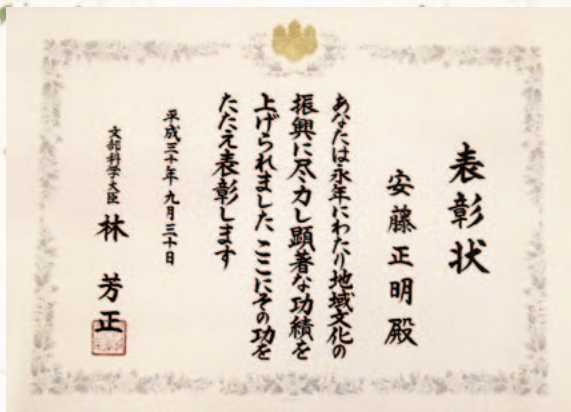 表彰状
安藤正明殿
あなたは永年にわたり地域文化の
振興に尽力し顕著な功績を
上げられました ここにその功を
たたえ表彰します
平成三十年九月三十日
文部科学大臣 林 芳正